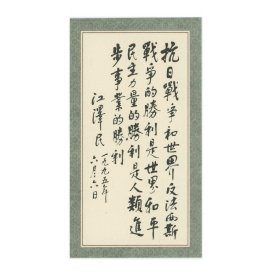 抗日戰爭和世界反法西斯
戰爭的勝利是世界和平
民主力量的勝利是人類進
步事業的勝利
江澤民
一九九五年
六月六日